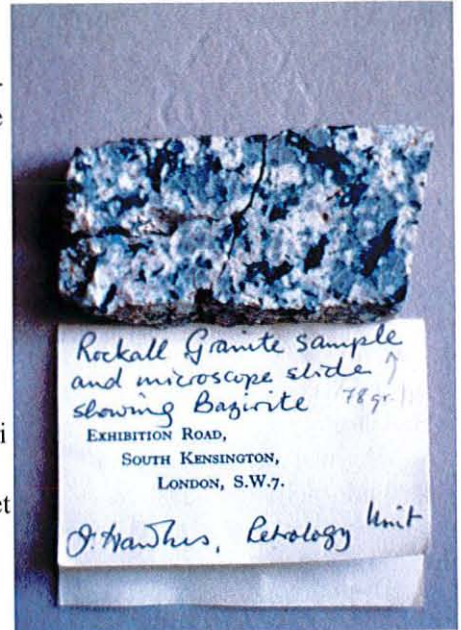 Rockall Granite sample
and microscope slide ↑
showing Bazirite 78gr.
EXHIBITION ROAD,
SOUTH KENSINGTON,
LONDON, S.W.7.
J. Hawkes, Petrology Unit
e
i
et